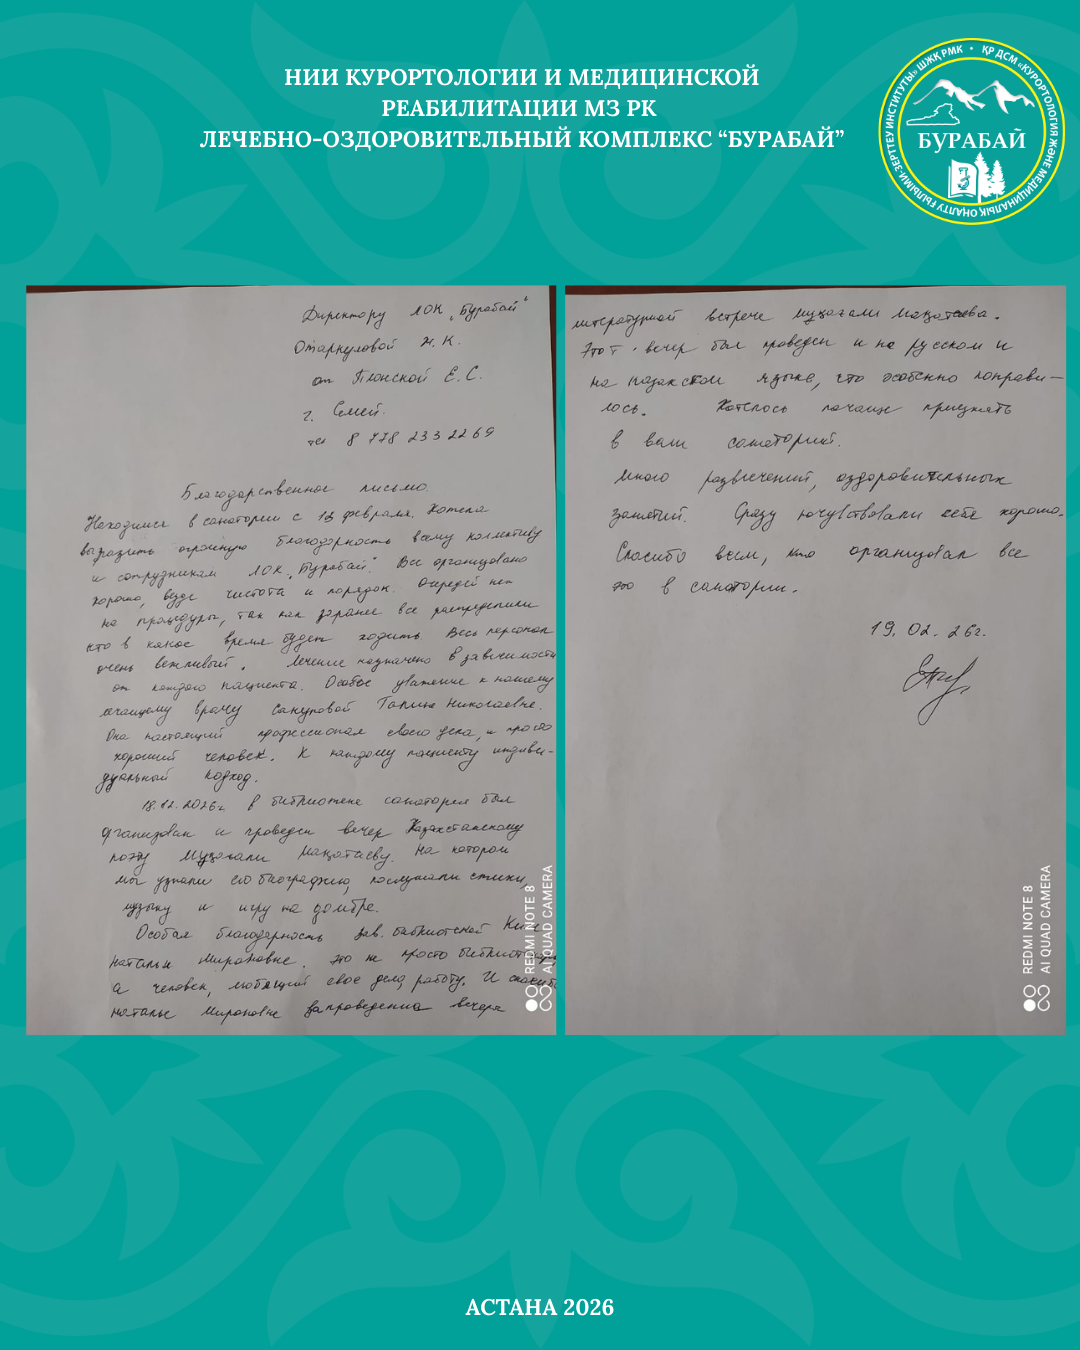 НИИ КУРОРТОЛОГИИ И МЕДИЦИНСКОЙ
РЕАБИЛИТАЦИИ МЗ РК
ЛЕЧЕБНО-ОЗДОРОВИТЕЛЬНЫЙ КОМПЛЕКС “БУРАБАЙ”
ҚР ДСМ «КУРОРТОЛОГИЯ ЖӘНЕ МЕДИЦИНАЛЫҚ ОҢАЛТУ ҒЫЛЫМИ-ЗЕРТТЕУ ИНСТИТУТЫ» ШЖҚ РМК
БУРАБАЙ
Директору ЛОК „Бурабай“
Н. К.
от Плонской Е. С.
г. Семей.
тел 8 778 233 2269
Благодарственное письмо.
Находимся в санатории с 13 февраля. Хотела
выразить огромную благодарность всему коллективу
и сотрудникам ЛОК „Бурабай“. Все организовано
хорошо, везде чистота и порядок. Очередей нет
на процедуры, так как заранее все распределили
кто в какое время будет ходить. Весь персонал
очень вежливый. Лечение назначено в зависимости
от каждого пациента. Особое уважение к нашему
лечащему врачу Николаевне.
Она настоящий профессионал своего дела, и просто
хороший человек. К каждому пациенту индиви-
дуальный подход.
18.12.2026г. в библиотеке санатория был
организован и проведен вечер Казахстанскому
поэту Муқағали Мақатаеву. На котором
мы узнали его биографию, послушали стихи,
музыку и игру на домбре.
Особая благодарность зав. библиотекой
Наталье Мироновне. Это не просто
а человек, любящий свое дело, работу. И
Наталье Мироновне за проведение вечера
REDMI NOTE 8
AI QUAD CAMERA
литературной встрече Муқағали Мақатаева.
Этот вечер был проведен и на русском и
на казахском языке, что особенно понрави-
лось. Хотелось почаще приезжать
в ваш санаторий.
Много развлечений, оздоровительных
занятий. Сразу почувствовали себя хорошо.
Спасибо всем, кто организовал все
это в санатории.
19. 02. 26г.
REDMI NOTE 8
AI QUAD CAMERA
АСТАНА 2026